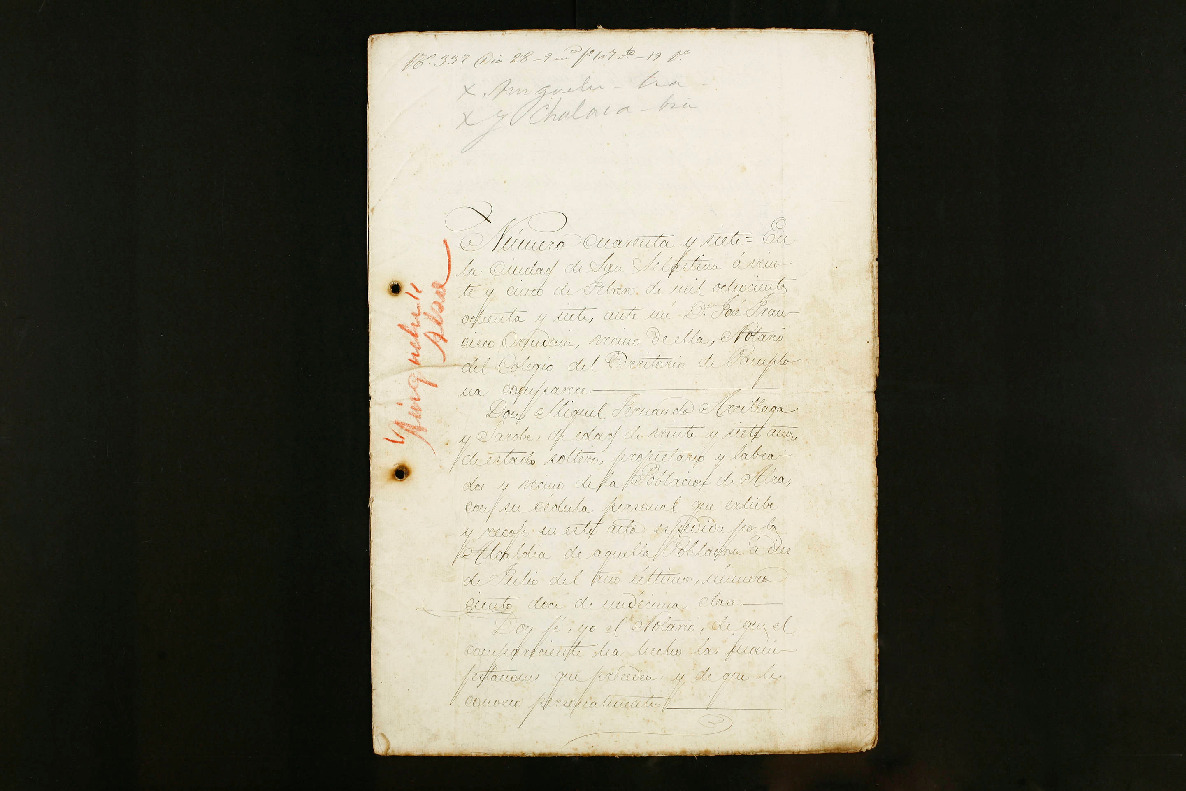 Nº 337 Dia 28
x Amguelu-
x y Chalaca-
Número Cuarenta y siete= En
la Ciudad de San Sebastian á vein-
te y cinco de Febro. de mil ochocientos
ochenta y siete, ante mi D. José Fran-
cisco Orendain, vecino de ella, Notario
del Colegio del Territorio de Pamplo-
na comparece
Don Miguel Fernando
y de edad de veinte y siete años,
de estado soltero, propietario y labra-
dor y vecino de la Poblacion de Alza,
con su cédula personal que exhibe
y recoge en este acto expedida por la
Alcaldia de aquella Poblacion á diez
de Julio del año último, número
ciento doce de undécima clase
Doy fé yo el Notario, de que el
compareciente ha hecho las mani-
festaciones que preceden y de que le
conozco personalmente